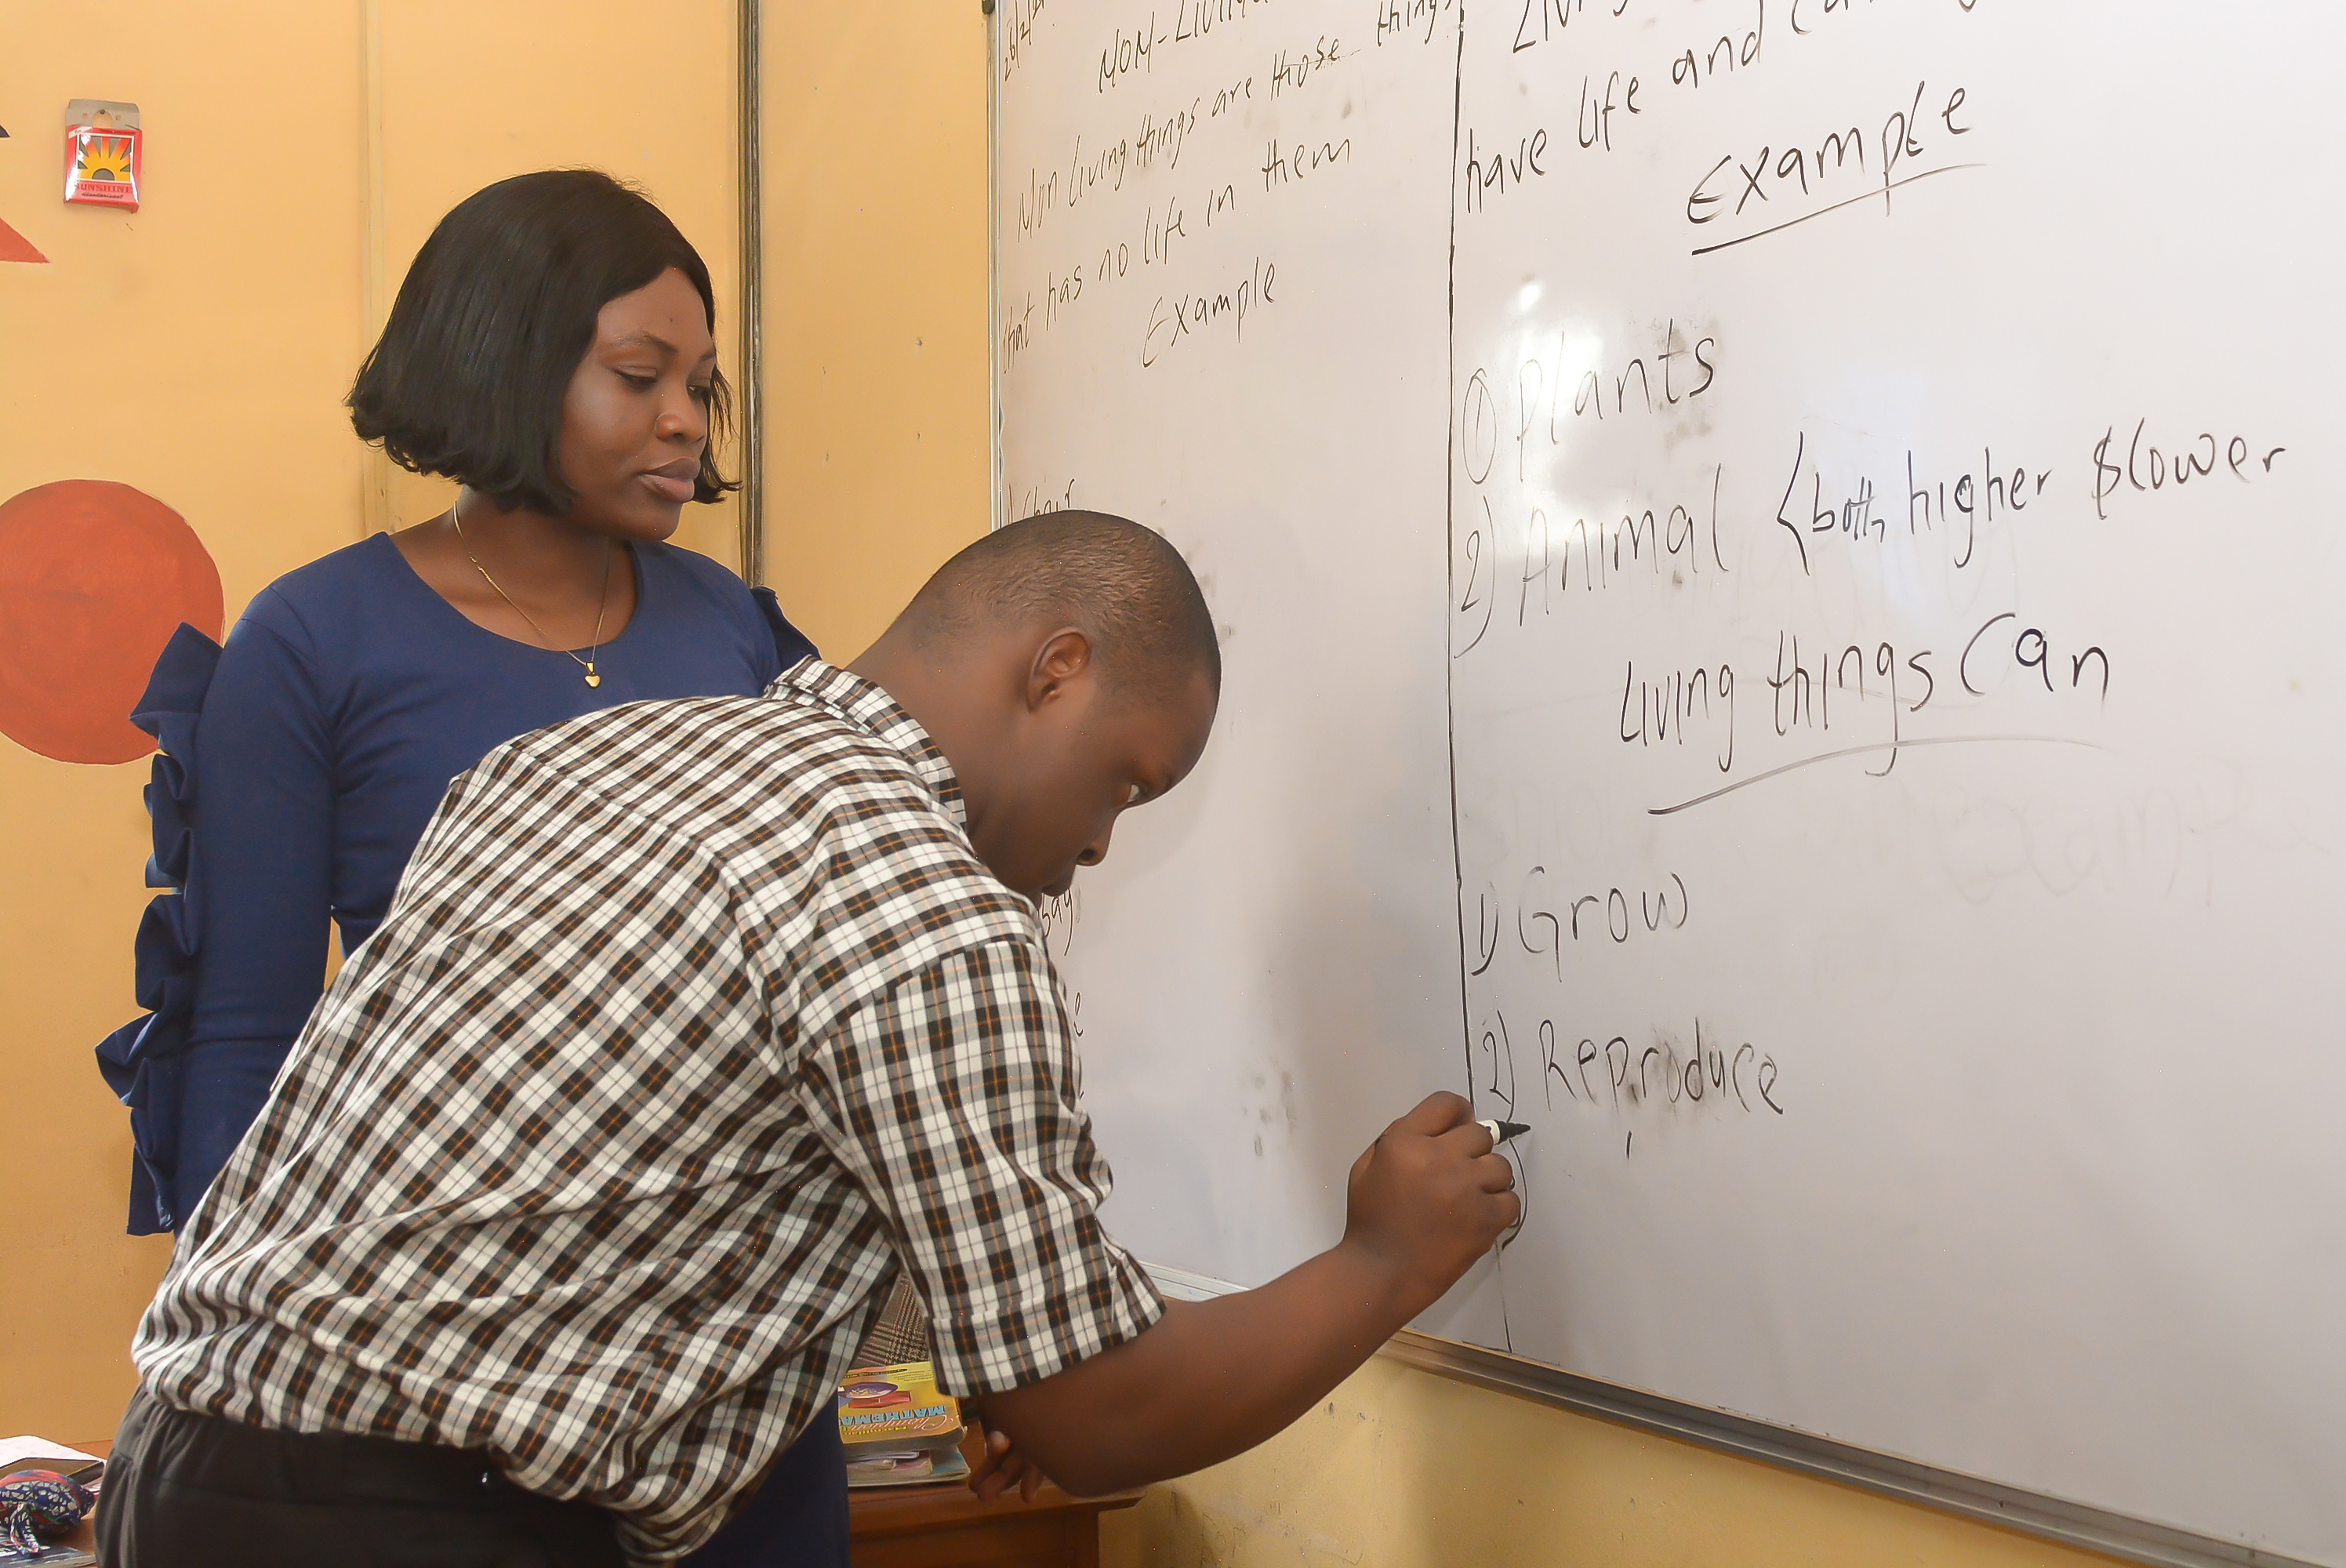 SUNSHINE
NON-Living
Non living things are those things
that has no life in them
Example
Chair
bag
Living
have life and
Example
① Plants
2) Animal <both higher & lower
Living things Can
1) Grow
2) Reproduce
MATHEMA